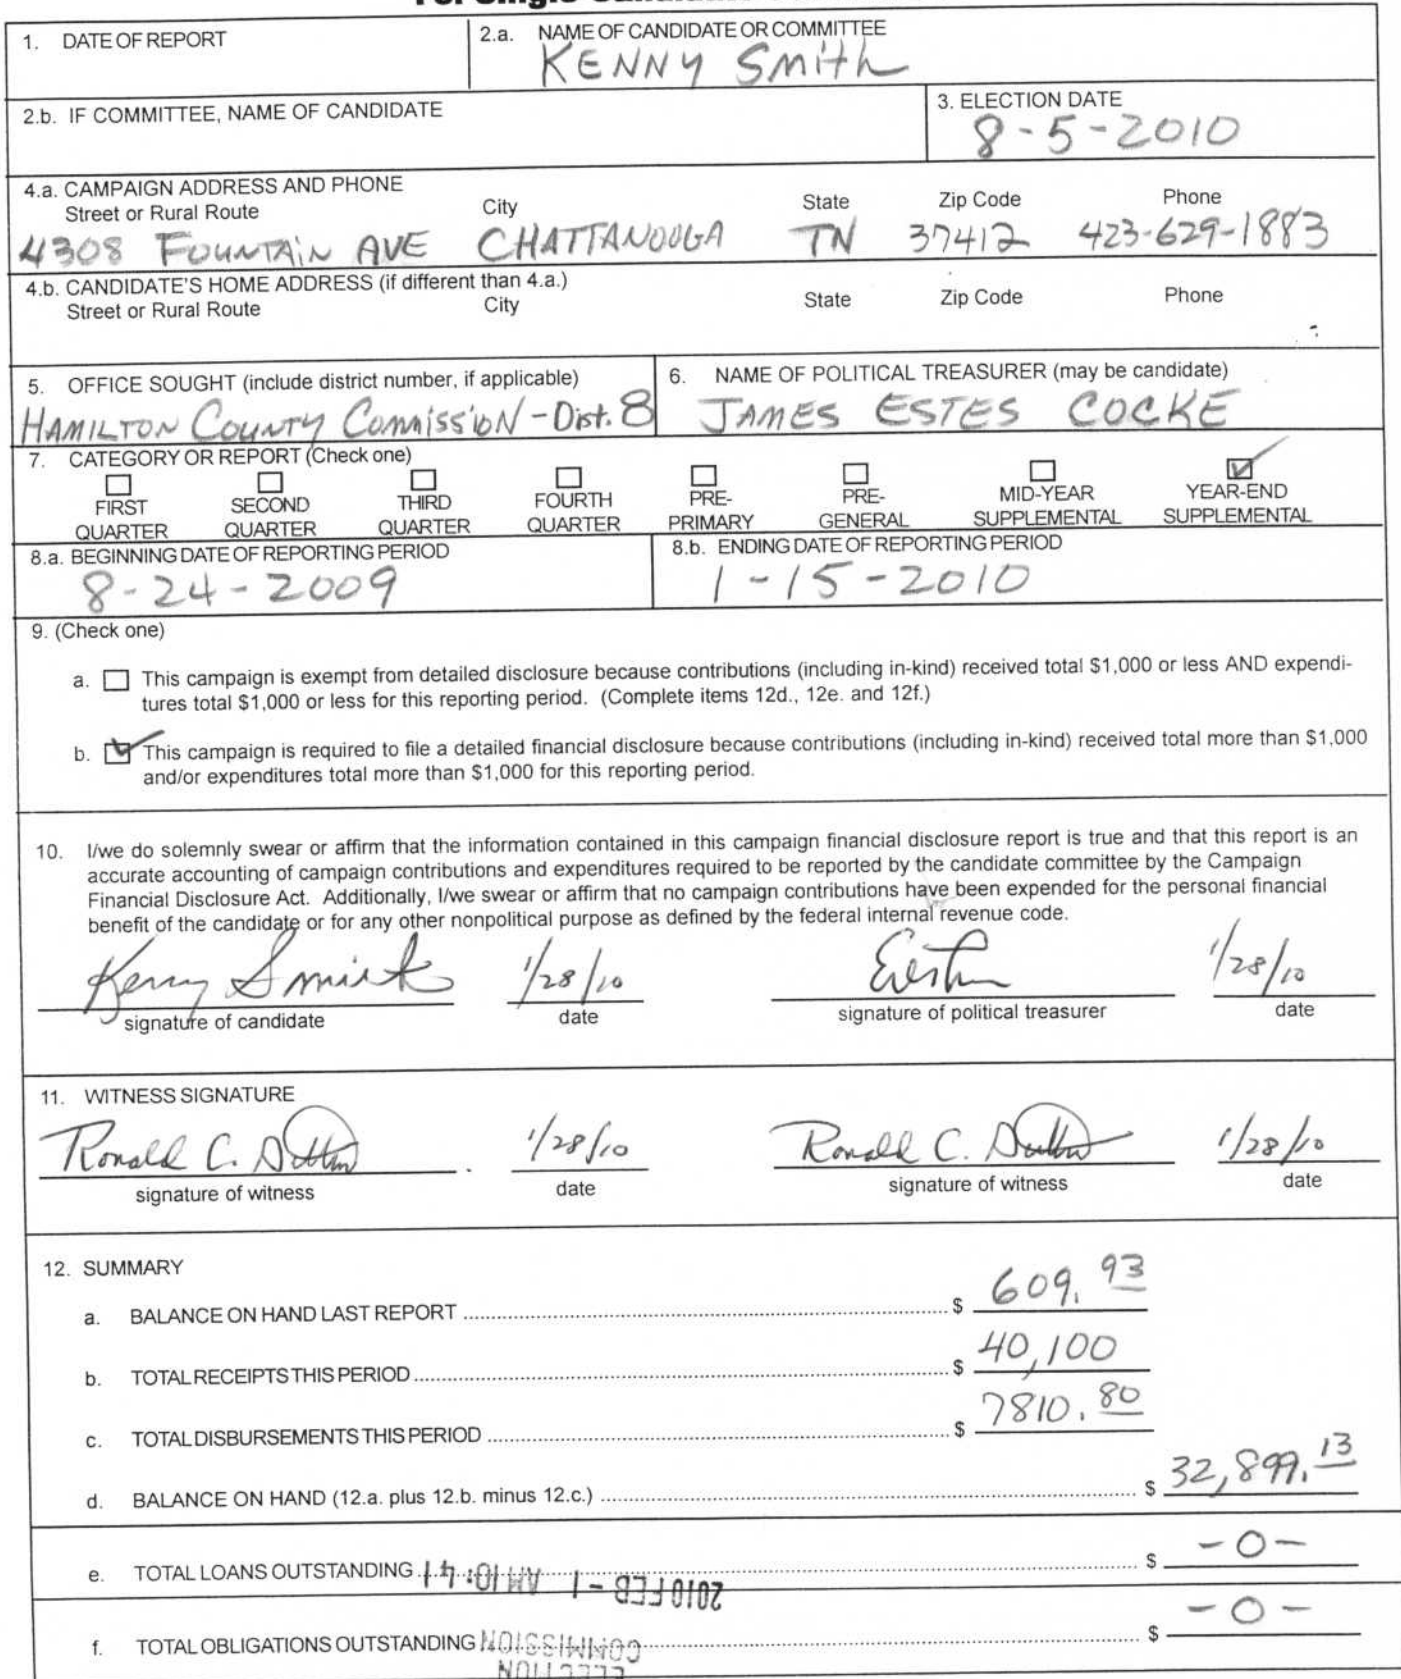 1. DATE OF REPORT
2.a. NAME OF CANDIDATE OR COMMITTEE
KENNY Smith
2.b. IF COMMITTEE, NAME OF CANDIDATE
3. ELECTION DATE
8-5-2010
4.a. CAMPAIGN ADDRESS AND PHONE
Street or Rural Route City State Zip Code Phone
4308 FOUNTAIN AVE CHATTANOOGA TN 37412 423-629-1883
4.b. CANDIDATE'S HOME ADDRESS (if different than 4.a.)
Street or Rural Route City State Zip Code Phone
5. OFFICE SOUGHT (include district number, if applicable)
HAMILTON COUNTY COMMISSION - Dist. 8
6. NAME OF POLITICAL TREASURER (may be candidate)
JAMES ESTES COCKE
7. CATEGORY OR REPORT (Check one)
FIRST QUARTER
SECOND QUARTER
THIRD QUARTER
FOURTH QUARTER
PRE-PRIMARY
PRE-GENERAL
MID-YEAR SUPPLEMENTAL
YEAR-END SUPPLEMENTAL
8.a. BEGINNING DATE OF REPORTING PERIOD
8-24-2009
8.b. ENDING DATE OF REPORTING PERIOD
1-15-2010
9. (Check one)
a. This campaign is exempt from detailed disclosure because contributions (including in-kind) received total $1,000 or less AND expendi-
tures total $1,000 or less for this reporting period. (Complete items 12d., 12e. and 12f.)
b. This campaign is required to file a detailed financial disclosure because contributions (including in-kind) received total more than $1,000
and/or expenditures total more than $1,000 for this reporting period.
10. I/we do solemnly swear or affirm that the information contained in this campaign financial disclosure report is true and that this report is an
accurate accounting of campaign contributions and expenditures required to be reported by the candidate committee by the Campaign
Financial Disclosure Act. Additionally, I/we swear or affirm that no campaign contributions have been expended for the personal financial
benefit of the candidate or for any other nonpolitical purpose as defined by the federal internal revenue code.
Kenny Smith 1/28/10 1/28/10
signature of candidate date signature of political treasurer date
11. WITNESS SIGNATURE
Ronald C. 1/28/10 Ronald C. 1/28/10
signature of witness date signature of witness date
12. SUMMARY
a. BALANCE ON HAND LAST REPORT $ 609.93
b. TOTAL RECEIPTS THIS PERIOD $ 40,100
c. TOTAL DISBURSEMENTS THIS PERIOD $ 7810.80
d. BALANCE ON HAND (12.a. plus 12.b. minus 12.c.) $ 32,899.13
e. TOTAL LOANS OUTSTANDING $ -0-
2010 FEB -1 AM 10: 41
f. TOTAL OBLIGATIONS OUTSTANDING $ -0-
COMMISSION
ELECTION